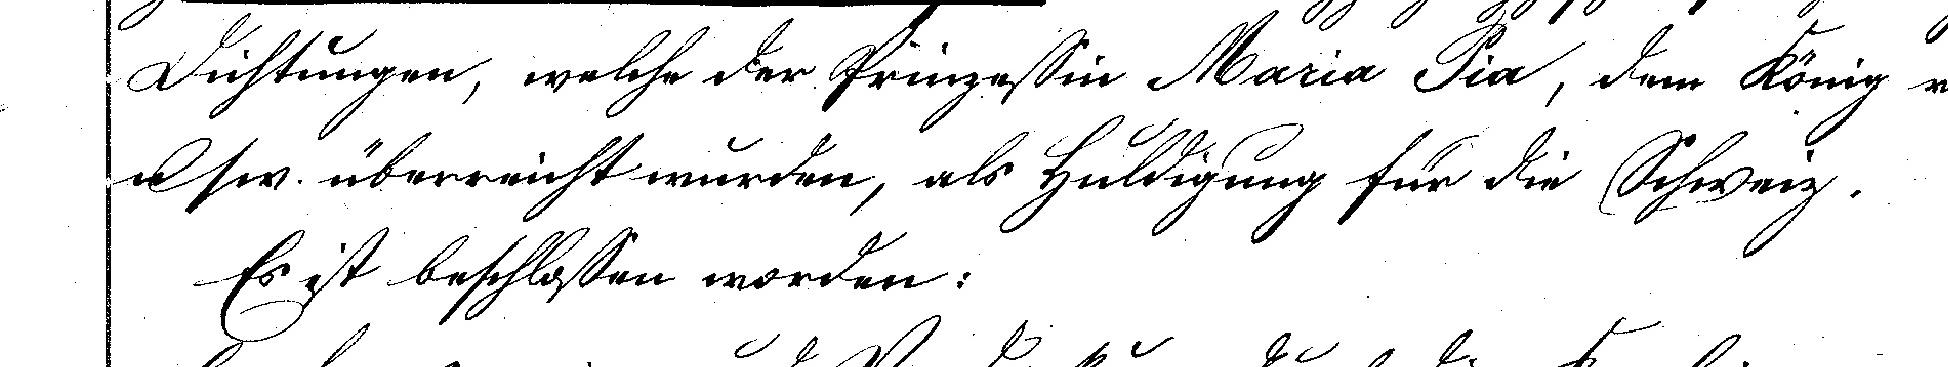 Dichtungen, welche der Prinzessin Maria Pia, dem König
usw. überreicht wurden, als Huldigung für die Schweiz.
Es ist beschlossen worden: